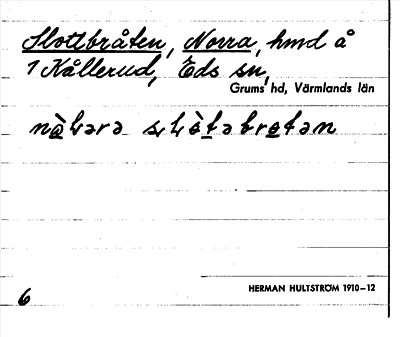 Slottbråten, Norra, hmd å
1 Kållerud, Eds sn,
Grums hd, Värmlands län
6
HERMAN HULTSTRÖM 1910–12